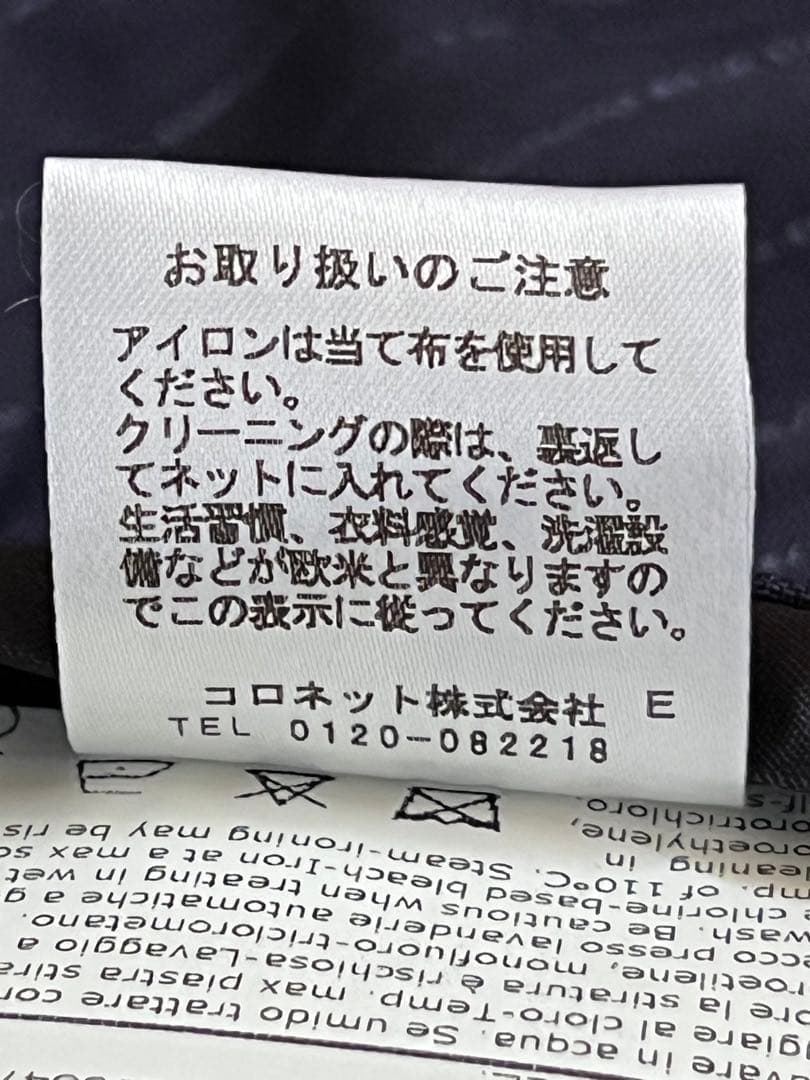 お取り扱いのご注意
アイロンは当て布を使用して
ください。
クリーニングの際は、裏返し
てネットに入れてください。
生活習慣、衣料感覚、洗濯設
備などが欧米と異なりますの
でこの表示に従ってください。
コロネット株式会社 E
TEL 0120-082218
in acqua. Se umido trattare
cloro-Temp. max piastra
la stiratura è rischiosa-Lavaggio a
monofluoro-triclorometano.
ecco presso lavanderie automatiche a
wash. Be cautious when treating in wet
chlorine-based bleach-Iron at a max
of 110°C. Steam-ironing may be
in